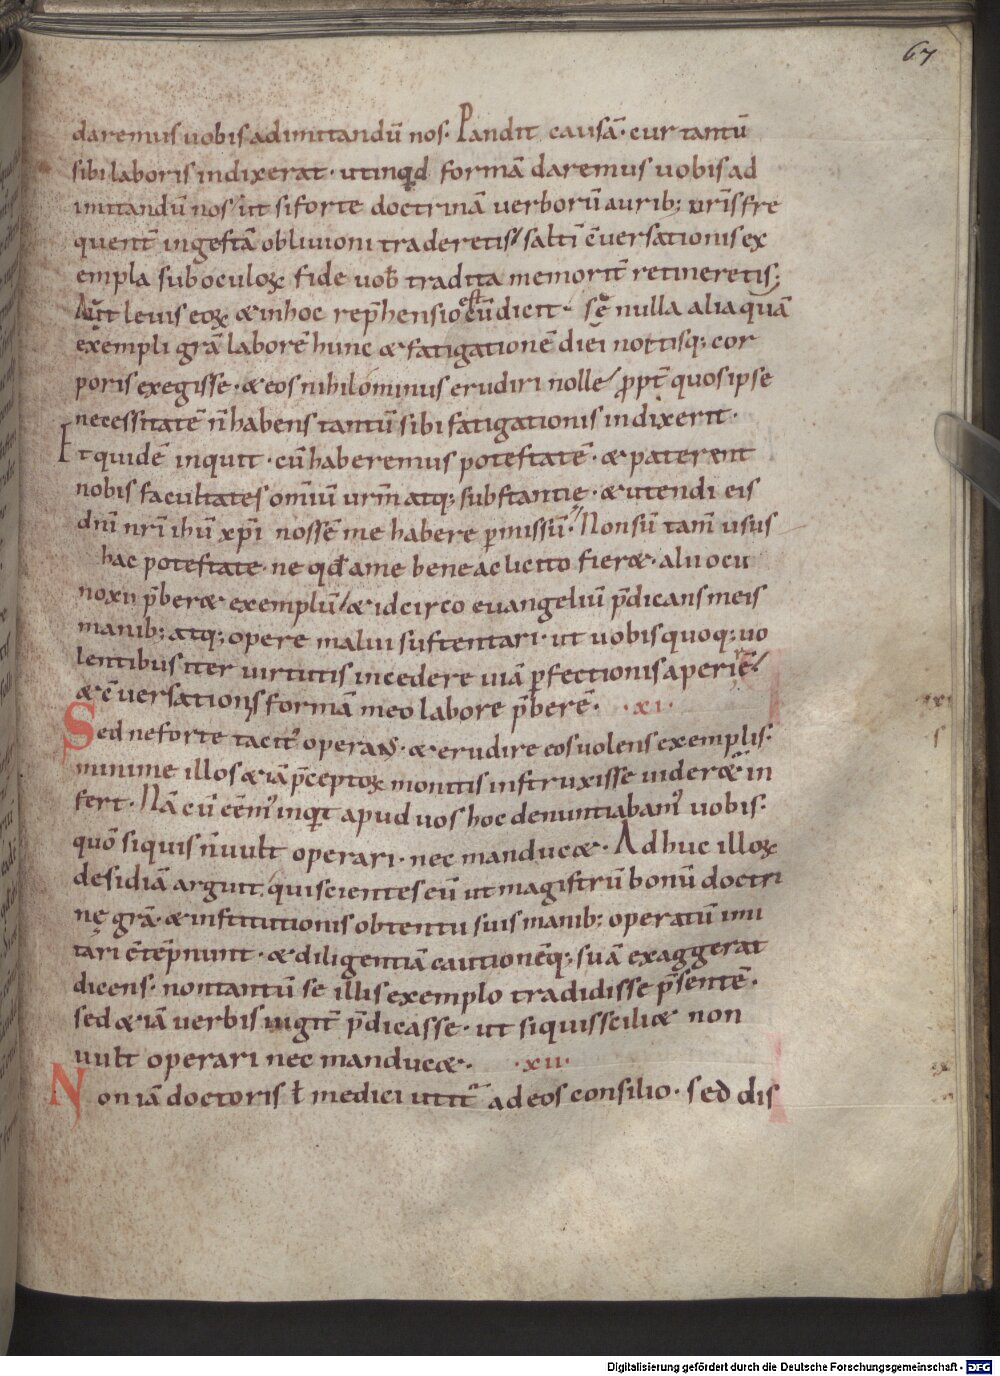 67
daremus uobis ad imitandū nos· Pandit causā· cur tantū
sibi laboris indixerat· ut inq̇d formā daremus uobis ad
imitandū nos ut si forte doctrinā uerborū aurib; ur̄is fre
quent̄ ingestā obliuioni traderetis, saltī c̄uersationis ex
empla sub oculoꝝ fide uob̄ tradita memorit̄ retineretis;
Aūt leuis eoꝝ & in hoc rep̄hensio est cū dicit· sc̄ nulla alia quā
exempli grā laborē hunc & fatigationē diei noctisq; cor
poris exegisse· & eos nihilominus erudiri nolle, ꝓpt̄ quos ipse
necessitatē n̄ habens tantū sibi fatigationis indixerit·
Et quidē inquit· cū haberemus potestatē· & paterent
nobis facultates omīū urm̄ atq; substantię· & utendi eis
dn̄i nr̄i ih̄u xp̄i nossē me habere ꝑmissū· Non sū tam̄ usus
hac potestate· ne qđ a me bene ac licito fier&· alii ocii
noxii p̄ber& exemplū, & idcirco euangeliū p̄dicans meis
manib; atq; opere malui sustentari· ut uobis quoq; uo
lentibus iter uirtutis incedere uiā ꝑfectionis aperirē,
& c̄uersationis formā meo labore p̄berē· ·xi·
Sed ne forte tacit᾽ operans· & erudire eos uolens exemplis·
minime illos &iā p̄ceptoꝝ monitis instruxisse uider&᾽ in
fert· Nā cū cēm᾽ inqt apud uos hoc denuntiabam᾽ uobis·
quō siquis n̄ uult operari· nec manduc&· Adhuc illoꝝ
desidiā arguit· qui scientes eū ut magistrū bonū doctri
nę grā· & institutionis obtentu suis manib; operatū imi
tari c̄tēpnunt· & diligentiā cautionēq; suā exaggerat
dicens· non tantū se illis exemplo tradidisse p̄sentē·
sed &iā uerbis iugit̄ p̄dicasse· ut siquis scilic& non
uult operari nec manduc&· ·xii·
Non iā doctoris ł medici utit᾽ ad eos consilio· sed dis
Digitalisierung gefördert durch die Deutsche Forschungsgemeinschaft - DFG